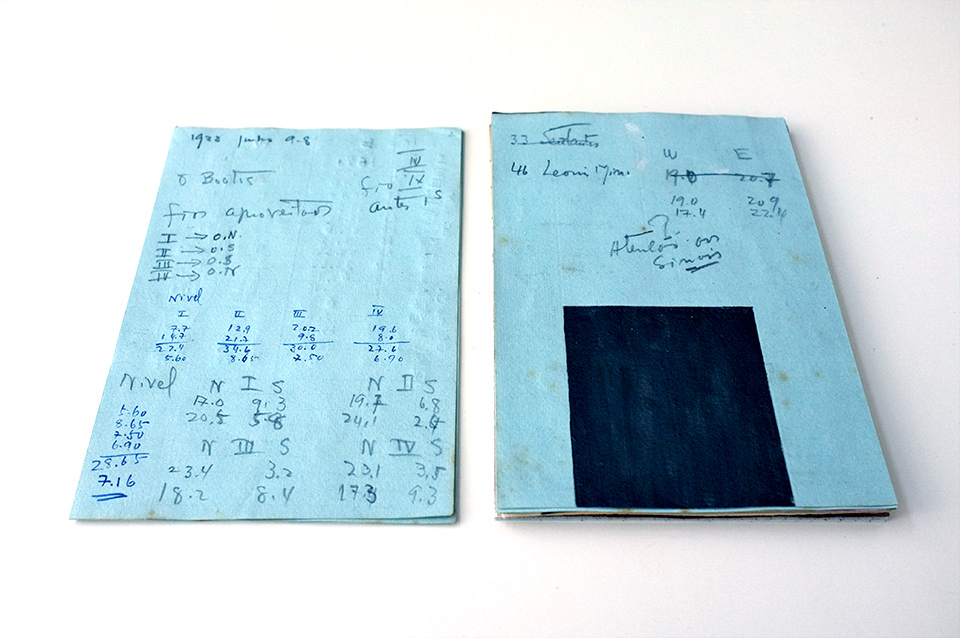 1922 9.8
IV
Bootis
IX
antes 1 S
fios aproveitados
I → O.N.
II → O.S
III → O.S
IV → O.N
Nivel
I II III IV
7.7 12.9 20.2 19.6
14.7 21.7 9.8 8.0
22.4 34.6 30.0 27.6
5.60 8.65 7.50 6.90
Nivel
N I S N II S
17.0 9.3 19.7 6.8
20.5 5.8 24.1 2.4
5.60
8.65
7.50
6.90
28.65
7.16
N III S N IV S
23.4 3.2 23.1 3.5
18.2 8.4 17.3 9.3
33 Sextantis
46 Leonis Min.
W E
19.0 20.7
19.0 20.9
17.4 22.4
?
Atenção aos
Sinais